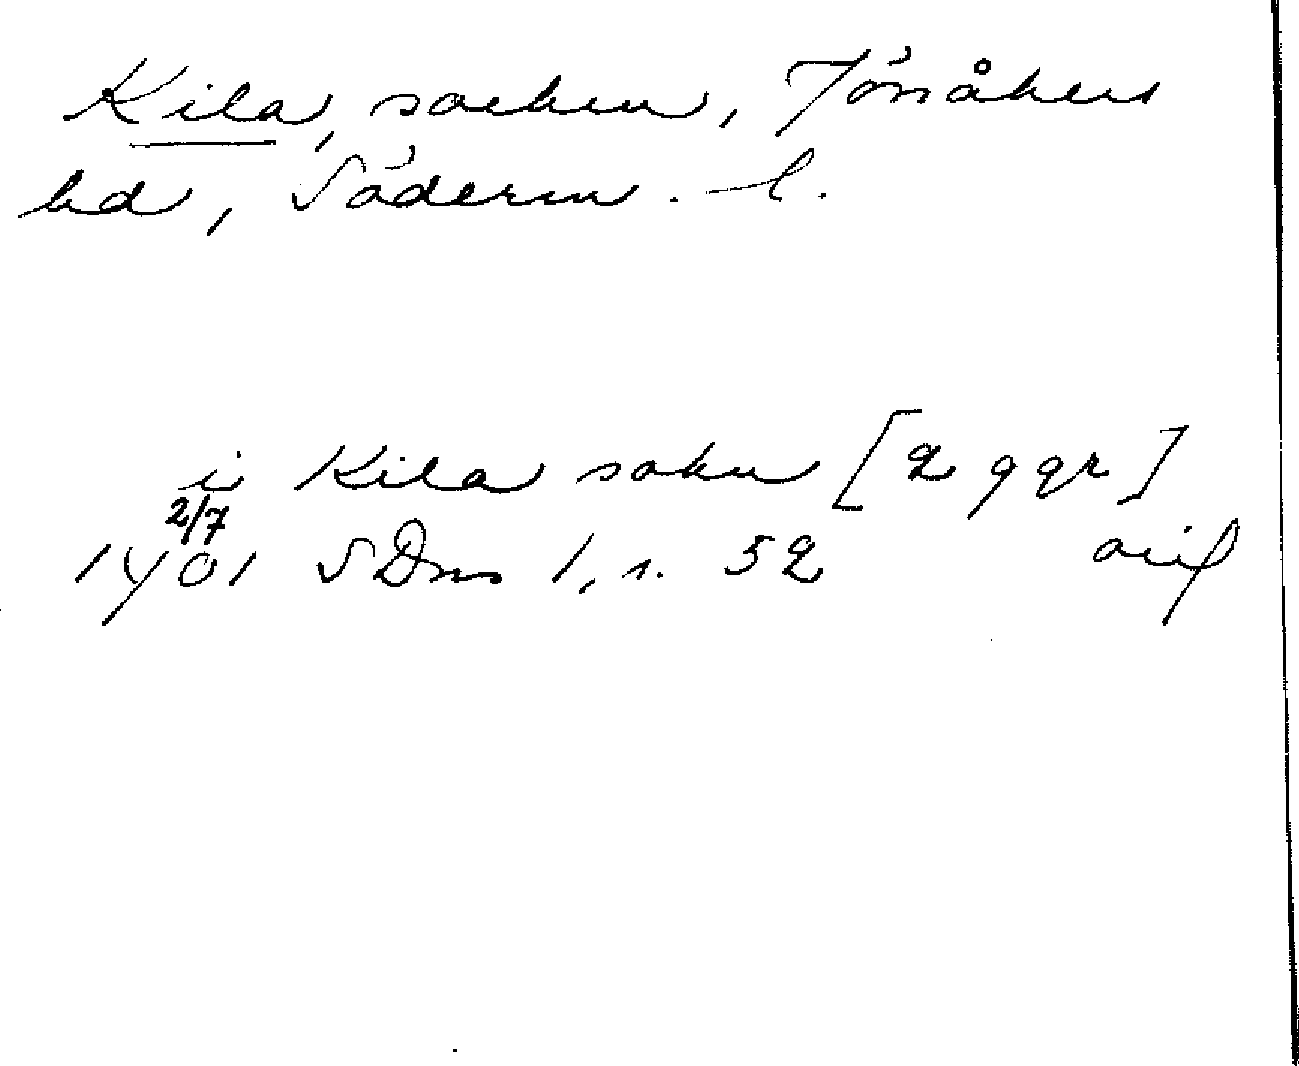 Kila, socken, Jönåkers
hd, Söderm. l.
i Kila sokn [2 ggr]
2/7
1401 SDns 1, s. 52 orig